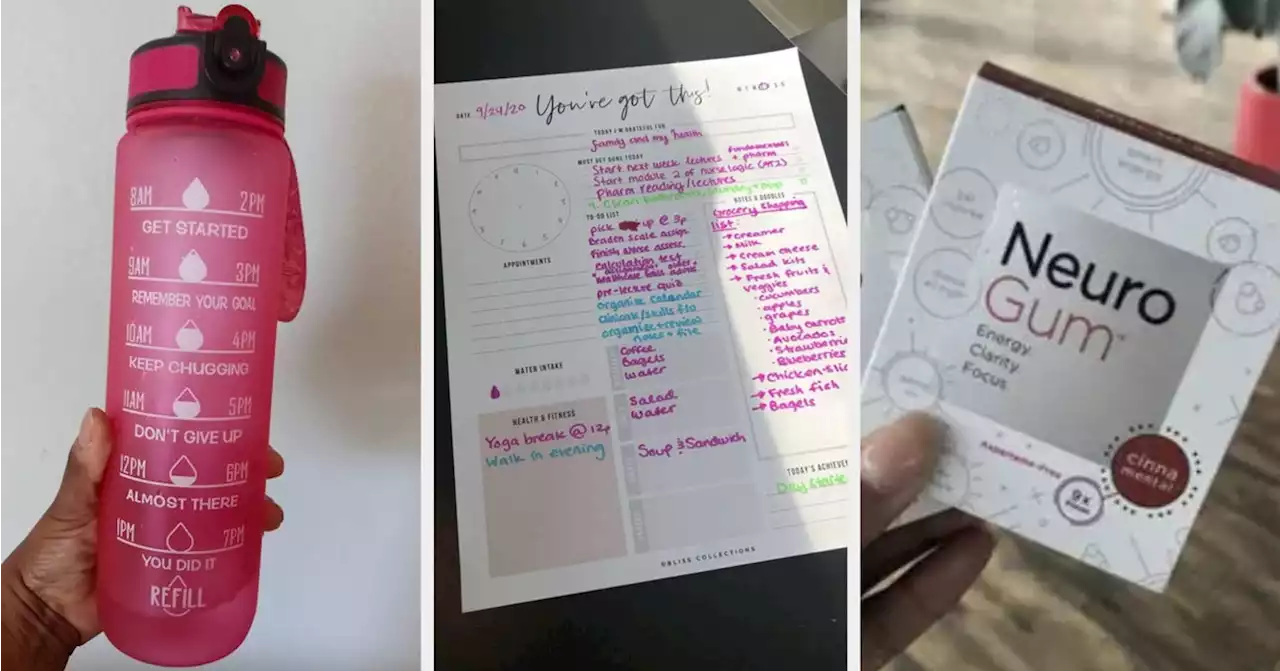 8AM 2PM
GET STARTED
9AM 3PM
REMEMBER YOUR GOAL
10AM 4PM
KEEP CHUGGING
11AM 5PM
DON'T GIVE UP
12PM 6PM
ALMOST THERE
1PM 7PM
YOU DID IT
REFILL
DATE 9/24/20 You've got this!
TODAY I'M GRATEFUL FOR
family and my health
MUST GET DONE TODAY
Start next week lectures fundamentals + pharm
Start module 2 of nurse logic (ATI)
Pharm reading/lectures
TO-DO LIST
pick up @ 3p
Braden scale assign.
Finish nurse assess.
calculation test
pre-lecture quiz
organize calendar
clinicals/skills
organize + review
notes +
APPOINTMENTS
NOTES & DOODLES
Grocery shopping
list:
→ creamer
→ Milk
→ Cream cheese
→ Salad kits
→ Fresh fruits &
veggies
· cucumbers
· apples
· grapes
· Baby carrots
· Avocados
· Strawberrie
· Blueberries
→ Chicken-
→ Fresh fish
→ Bagels
WATER INTAKE
Coffee
Bagels
Water
Salad
Water
Soup & Sandwich
HEALTH & FITNESS
Yoga break @ 12p
Walk in evening
TODAY'S ACHIEVE
BLISS COLLECTIONS
Neuro
Gum™
Energy
Clarity
Focus
Aspartame-Free
9x
cinna
mental